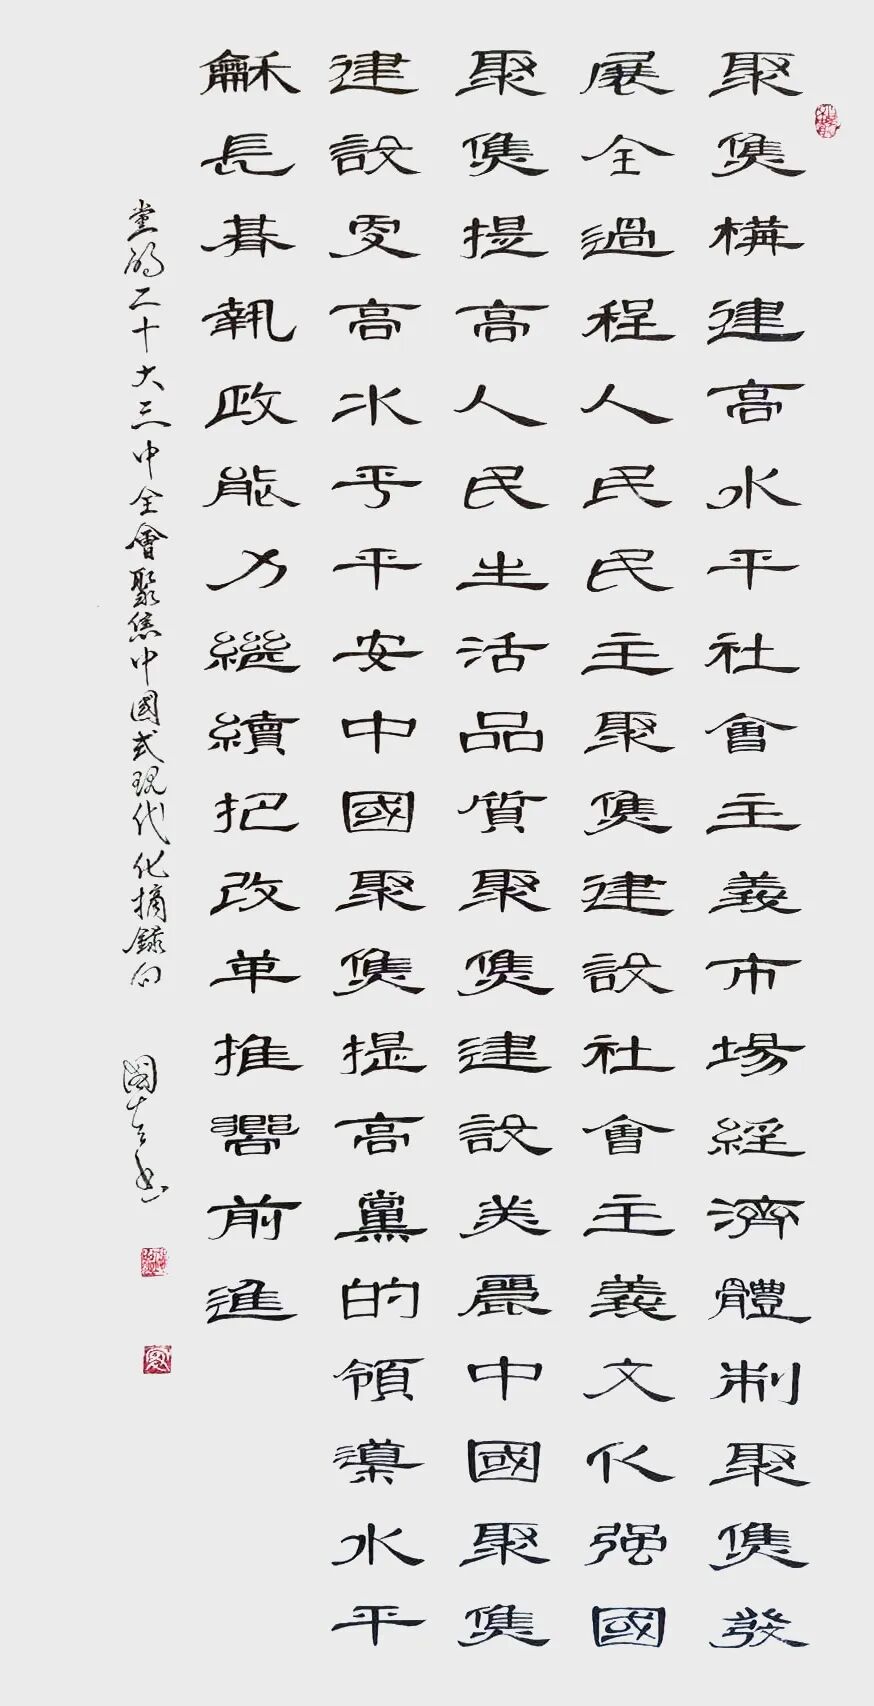 聚焦構建高水平社會主義市場經濟體制聚焦發
展全過程人民民主聚焦建設社會主義文化强國
聚焦提高人民生活品質聚焦建設美麗中國聚焦
建設更高水平平安中國聚焦提高黨的領導水平
龢長朞執政能力繼續把改革推嚮前進
黨的二十大三中全會聚焦中國式現代化摘録句 國